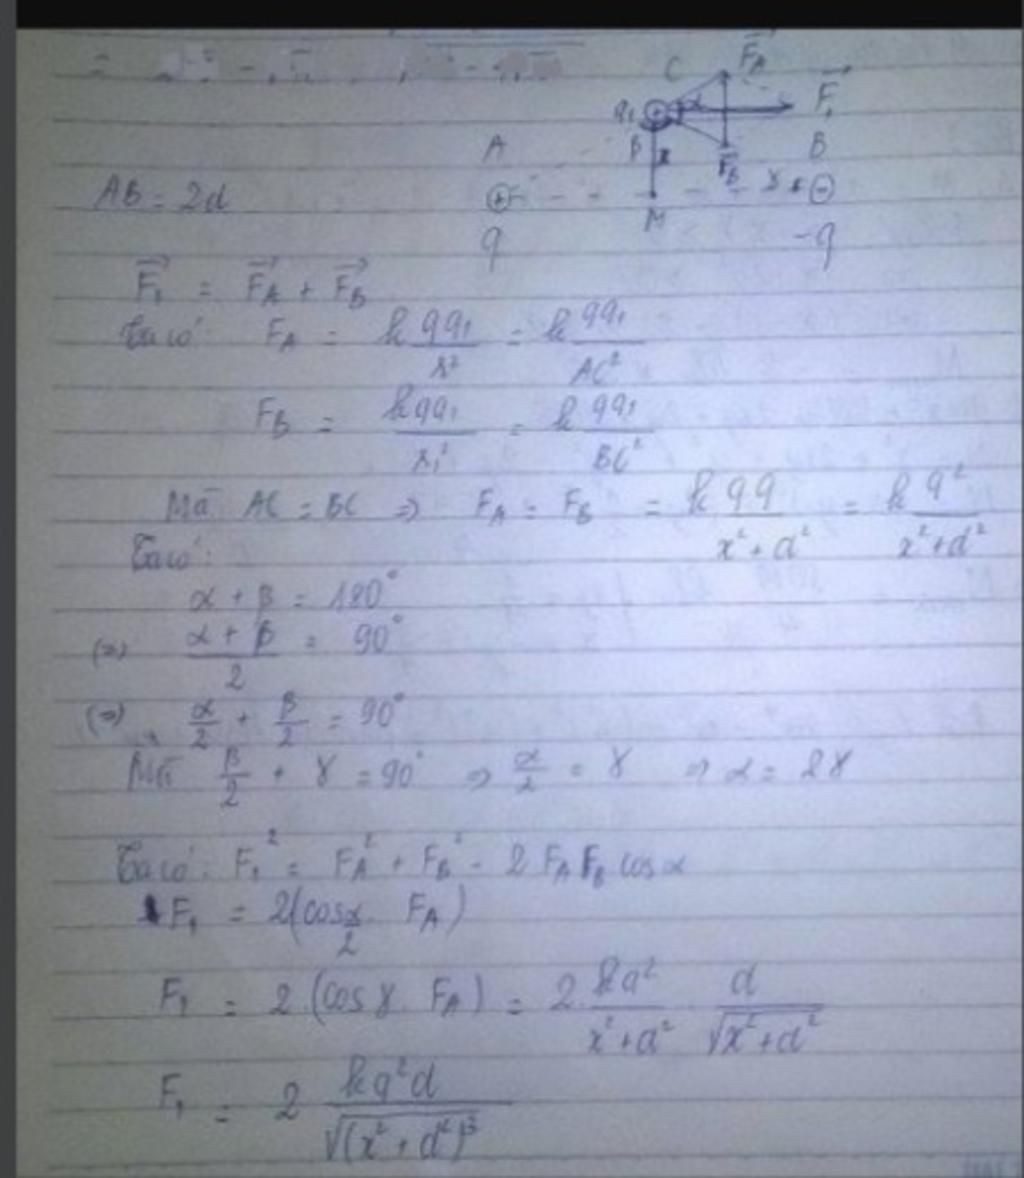 C F⃗A
q1 α F⃗1
A β x F⃗B B
AB = 2d
M
q -q
F⃗1 = F⃗A + F⃗B
Ta có: FA = k qq1/r² = k qq1/AC²
FB = kqq1/r1² = k qq1/BC²
Mà AC = BC => FA = FB = k qq/x²+d² = k q²/x²+d²
Ta có:
α + β = 180°
(=) α + β/2 = 90°
(=) α/2 + β/2 = 90°
Mà β/2 + γ = 90° => α/2 = γ => α = 2γ
Ta có: F1² = FA² + FB² - 2 FA FB cos α
F1 = 2(cos α/2 . FA)
F1 = 2 (cos γ . FA) = 2. kq²/x²+d² d/√x²+d²
F1 = 2 kq²d/√(x²+d²)³